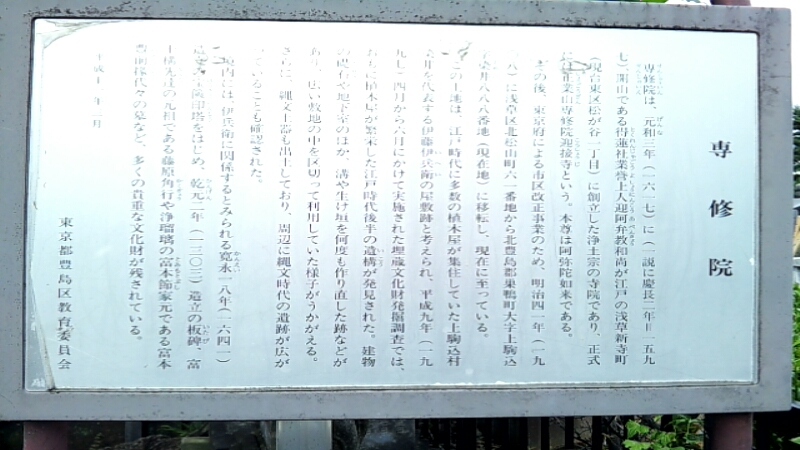 専修院
専修院は、元和三年（一六一七）に（一説に慶長二年＝一五九
七）開山である得蓮社業誉上人迎阿弁教和尚が江戸の浅草新寺町
（現台東区松が谷一丁目）に創立した浄土宗の寺院であり、正式
には正業山専修院迎接寺という。本尊は阿弥陀如来である。
その後、東京府による市区改正事業のため、明治四一年（一九
八）に浅草区北松山町六一番地から北豊島郡巣鴨町大字上駒込
字染井八八八番地（現在地）に移転し、現在に至っている。
この土地は、江戸時代に多数の植木屋が集住していた上駒込村
染井を代表する伊藤伊兵衛の屋敷跡と考えられ、平成九年（一九
九七）四月から六月にかけて実施された埋蔵文化財発掘調査では、
おもに植木屋が繁栄した江戸時代後半の遺構が発見された。建物
の礎石や地下室のほか、溝や生け垣を何度も作り直した跡などが
あり、広い敷地の中を区切って利用していた様子がうかがえる。
さらに、縄文土器も出土しており、周辺に縄文時代の遺跡が広が
っていることも確認された。
境内には、伊兵衛に関係するとみられる寛永一八年（一六四一）
造立の宝篋印塔をはじめ、乾元二年（一三〇三）造立の板碑、富
士講先達の元祖である藤原角行や浄瑠璃の富本節家元である富本
豊前掾代々の墓など、多くの貴重な文化財が残されている。
平成十年二月
東京都豊島区教育委員会